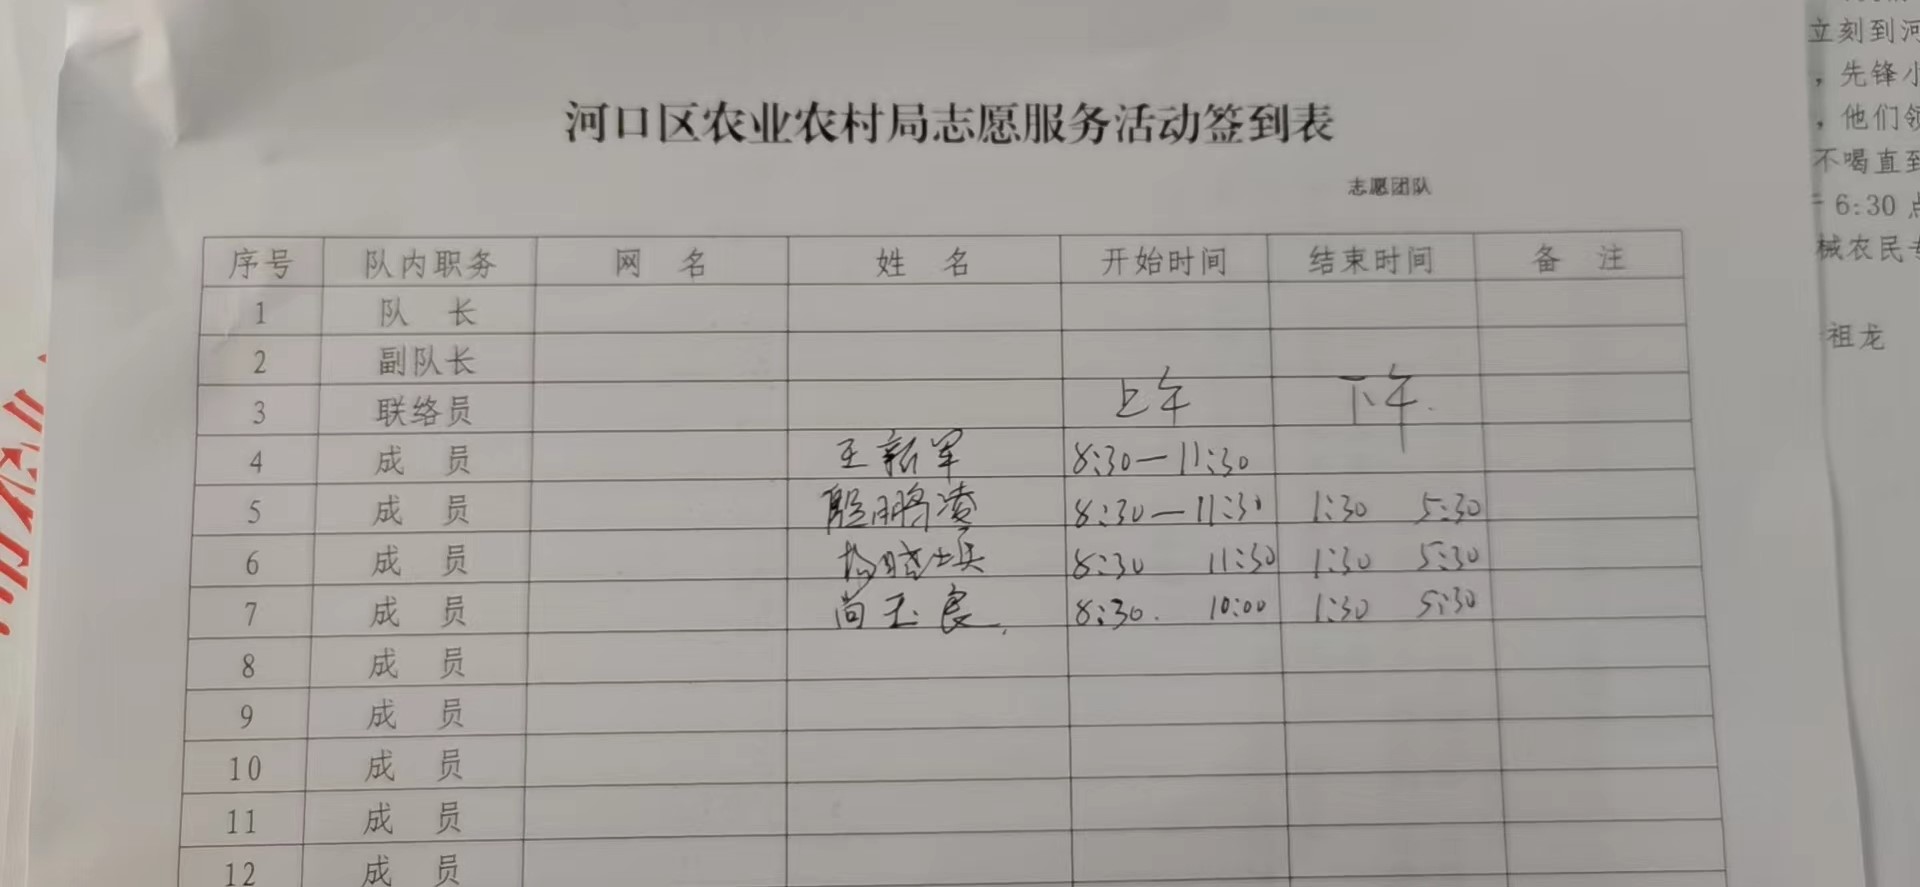 河口区农业农村局志愿服务活动签到表
志愿团队
序号 队内职务 网 名 姓 名 开始时间 结束时间 备 注
1 队 长
2 副队长
3 联络员 上午 下午
4 成 员 王新军 8:30—11:30
5 成 员 8:30—11:30 1:30 5:30
6 成 员 8:30 11:30 1:30 5:30
7 成 员 尚玉良 8:30 10:00 1:30 5:30
8 成 员
9 成 员
10 成 员
11 成 员
12 成 员
立刻到河
，先锋小
，他们领
不喝直到
6:30 点
械农民专
祖龙